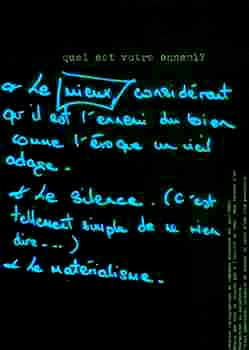 quel est votre ennemi?
Le mieux considérant
qu'il est l'ennemi du bien
comme l'évoque un vieil
adage.
Le silence. (C'est
tellement simple de ne rien
dire....)
Le matérialisme.